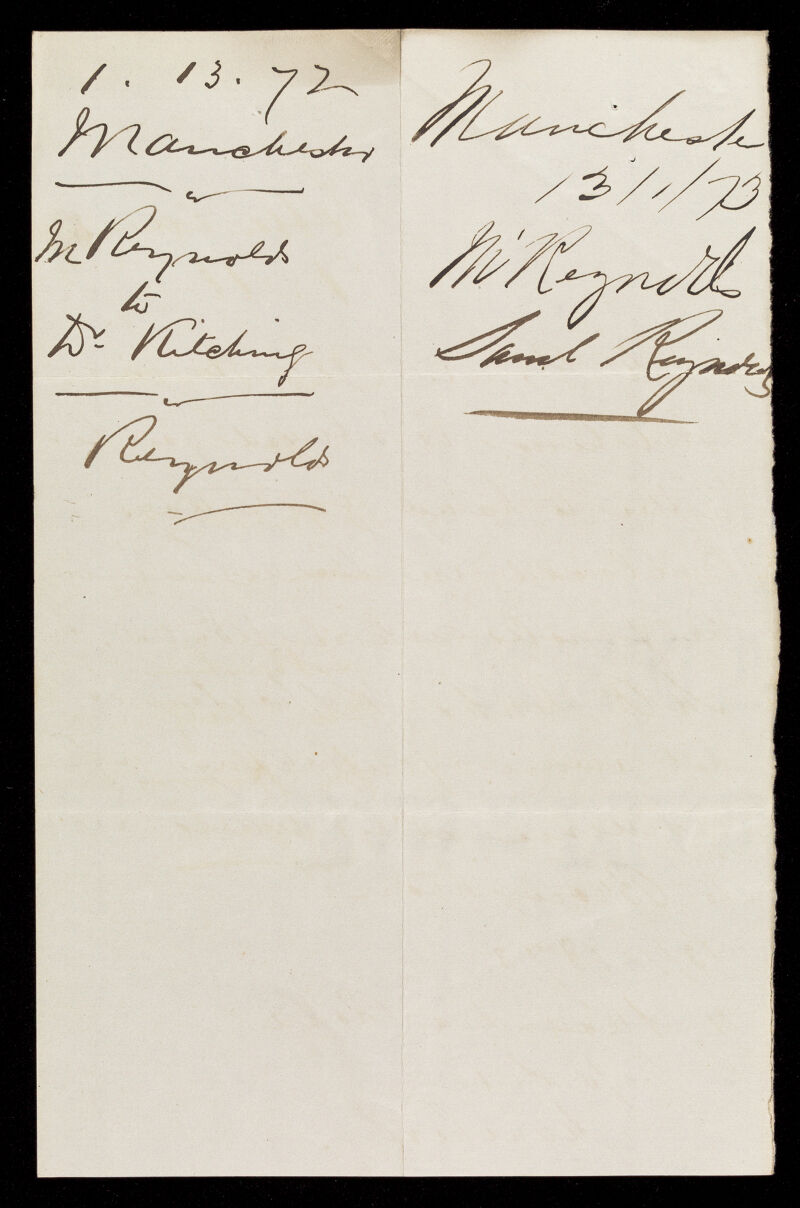 1. 13. 72
Manchester
M Reynolds
to
Dr. Kitching
Reynolds
Manchester
13/1/73
Mr Reynolds
Saml Reynolds